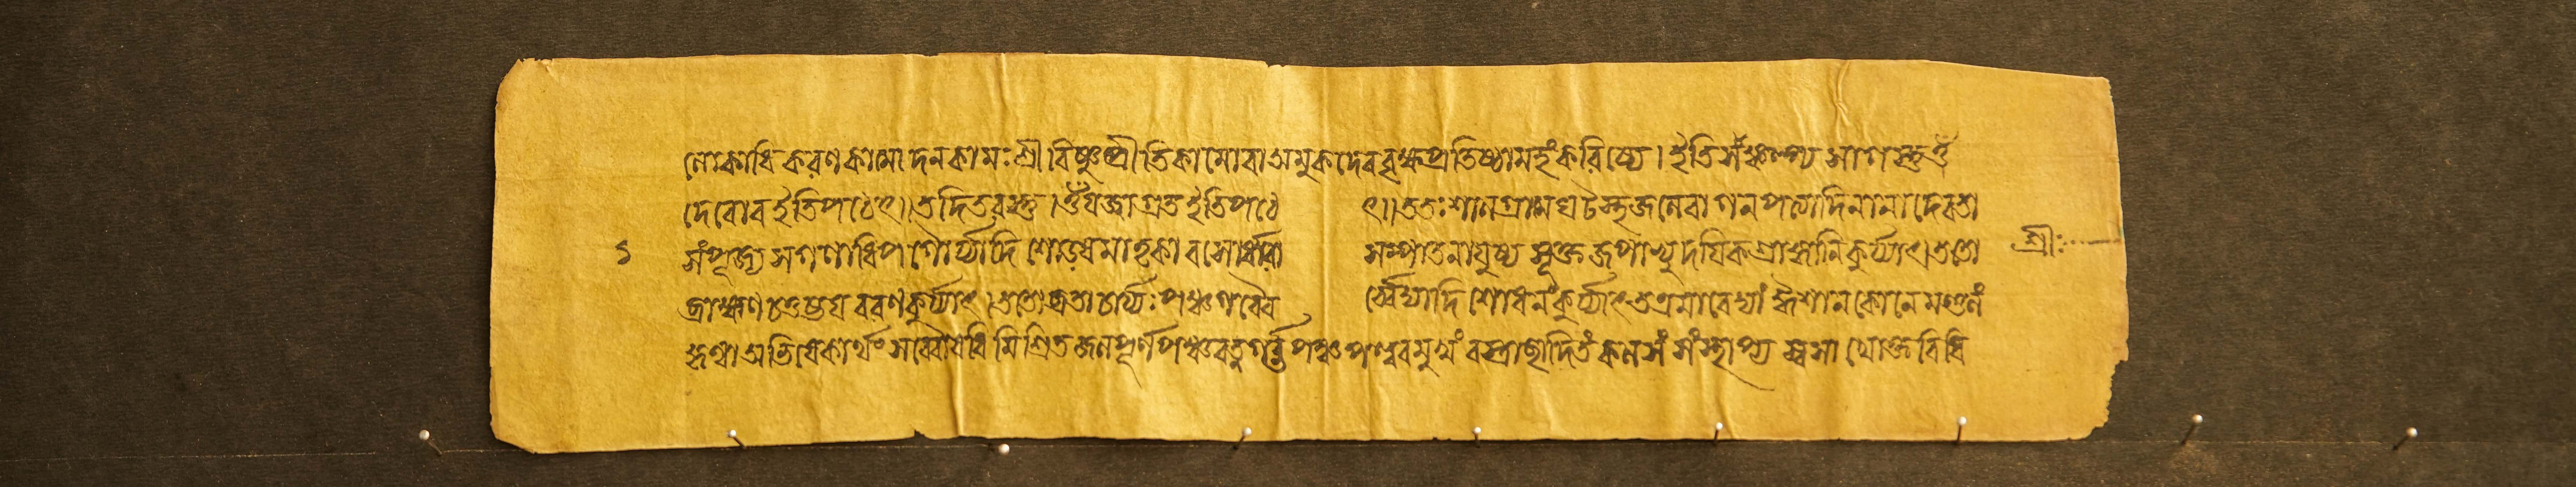 লোকাধিকরণকামোদনকামঃ শ্রীবিষ্ণুপ্রীতিকামোবা অমুকদেববৃক্ষপ্রতিষ্ঠামহং করিষ্যে। ইতি সঁঙ্কল্প্য সামগস্তু ওঁ
দেবোব ইতি পঠেৎ॥ তদিতরস্তু। ওঁ যজ্জাগ্রত ইতি পঠে ৎ॥ ততঃ শালগ্রামে ঘটস্থজলেবা গনপত্যাদিনানাদেবতা
সংপূজ্য সগণাধিপ গৌর্য্যাদি ষোড়শমাতৃকা বসোর্ধারা সম্পাতনায়ুষ্য সূক্ত জপাভ্যুদয়িকশ্রাদ্ধানি কুর্য্যাৎ। ততো
শ্রীঃ
ব্রাহ্মণচতুষ্টয় বরণং কুর্য্যাৎ। ততো ব্রতাচার্য্যঃ পঞ্চগব্যৈ র্ব্বেদ্যাদি শোধনং কুর্য্যাৎ তত্রমাবেদ্যাং ঈশানকোনে মণ্ডলং
কৃত্বা অভিষেকার্থং সর্ব্বৌষধিমিশ্রিত জলপূর্ণ পঞ্চরত্নগর্ভ পঞ্চপল্লবমুখং বস্ত্রাচ্ছাদিতং কলসং সংস্থাপ্য স্বশাখোক্তবিধি